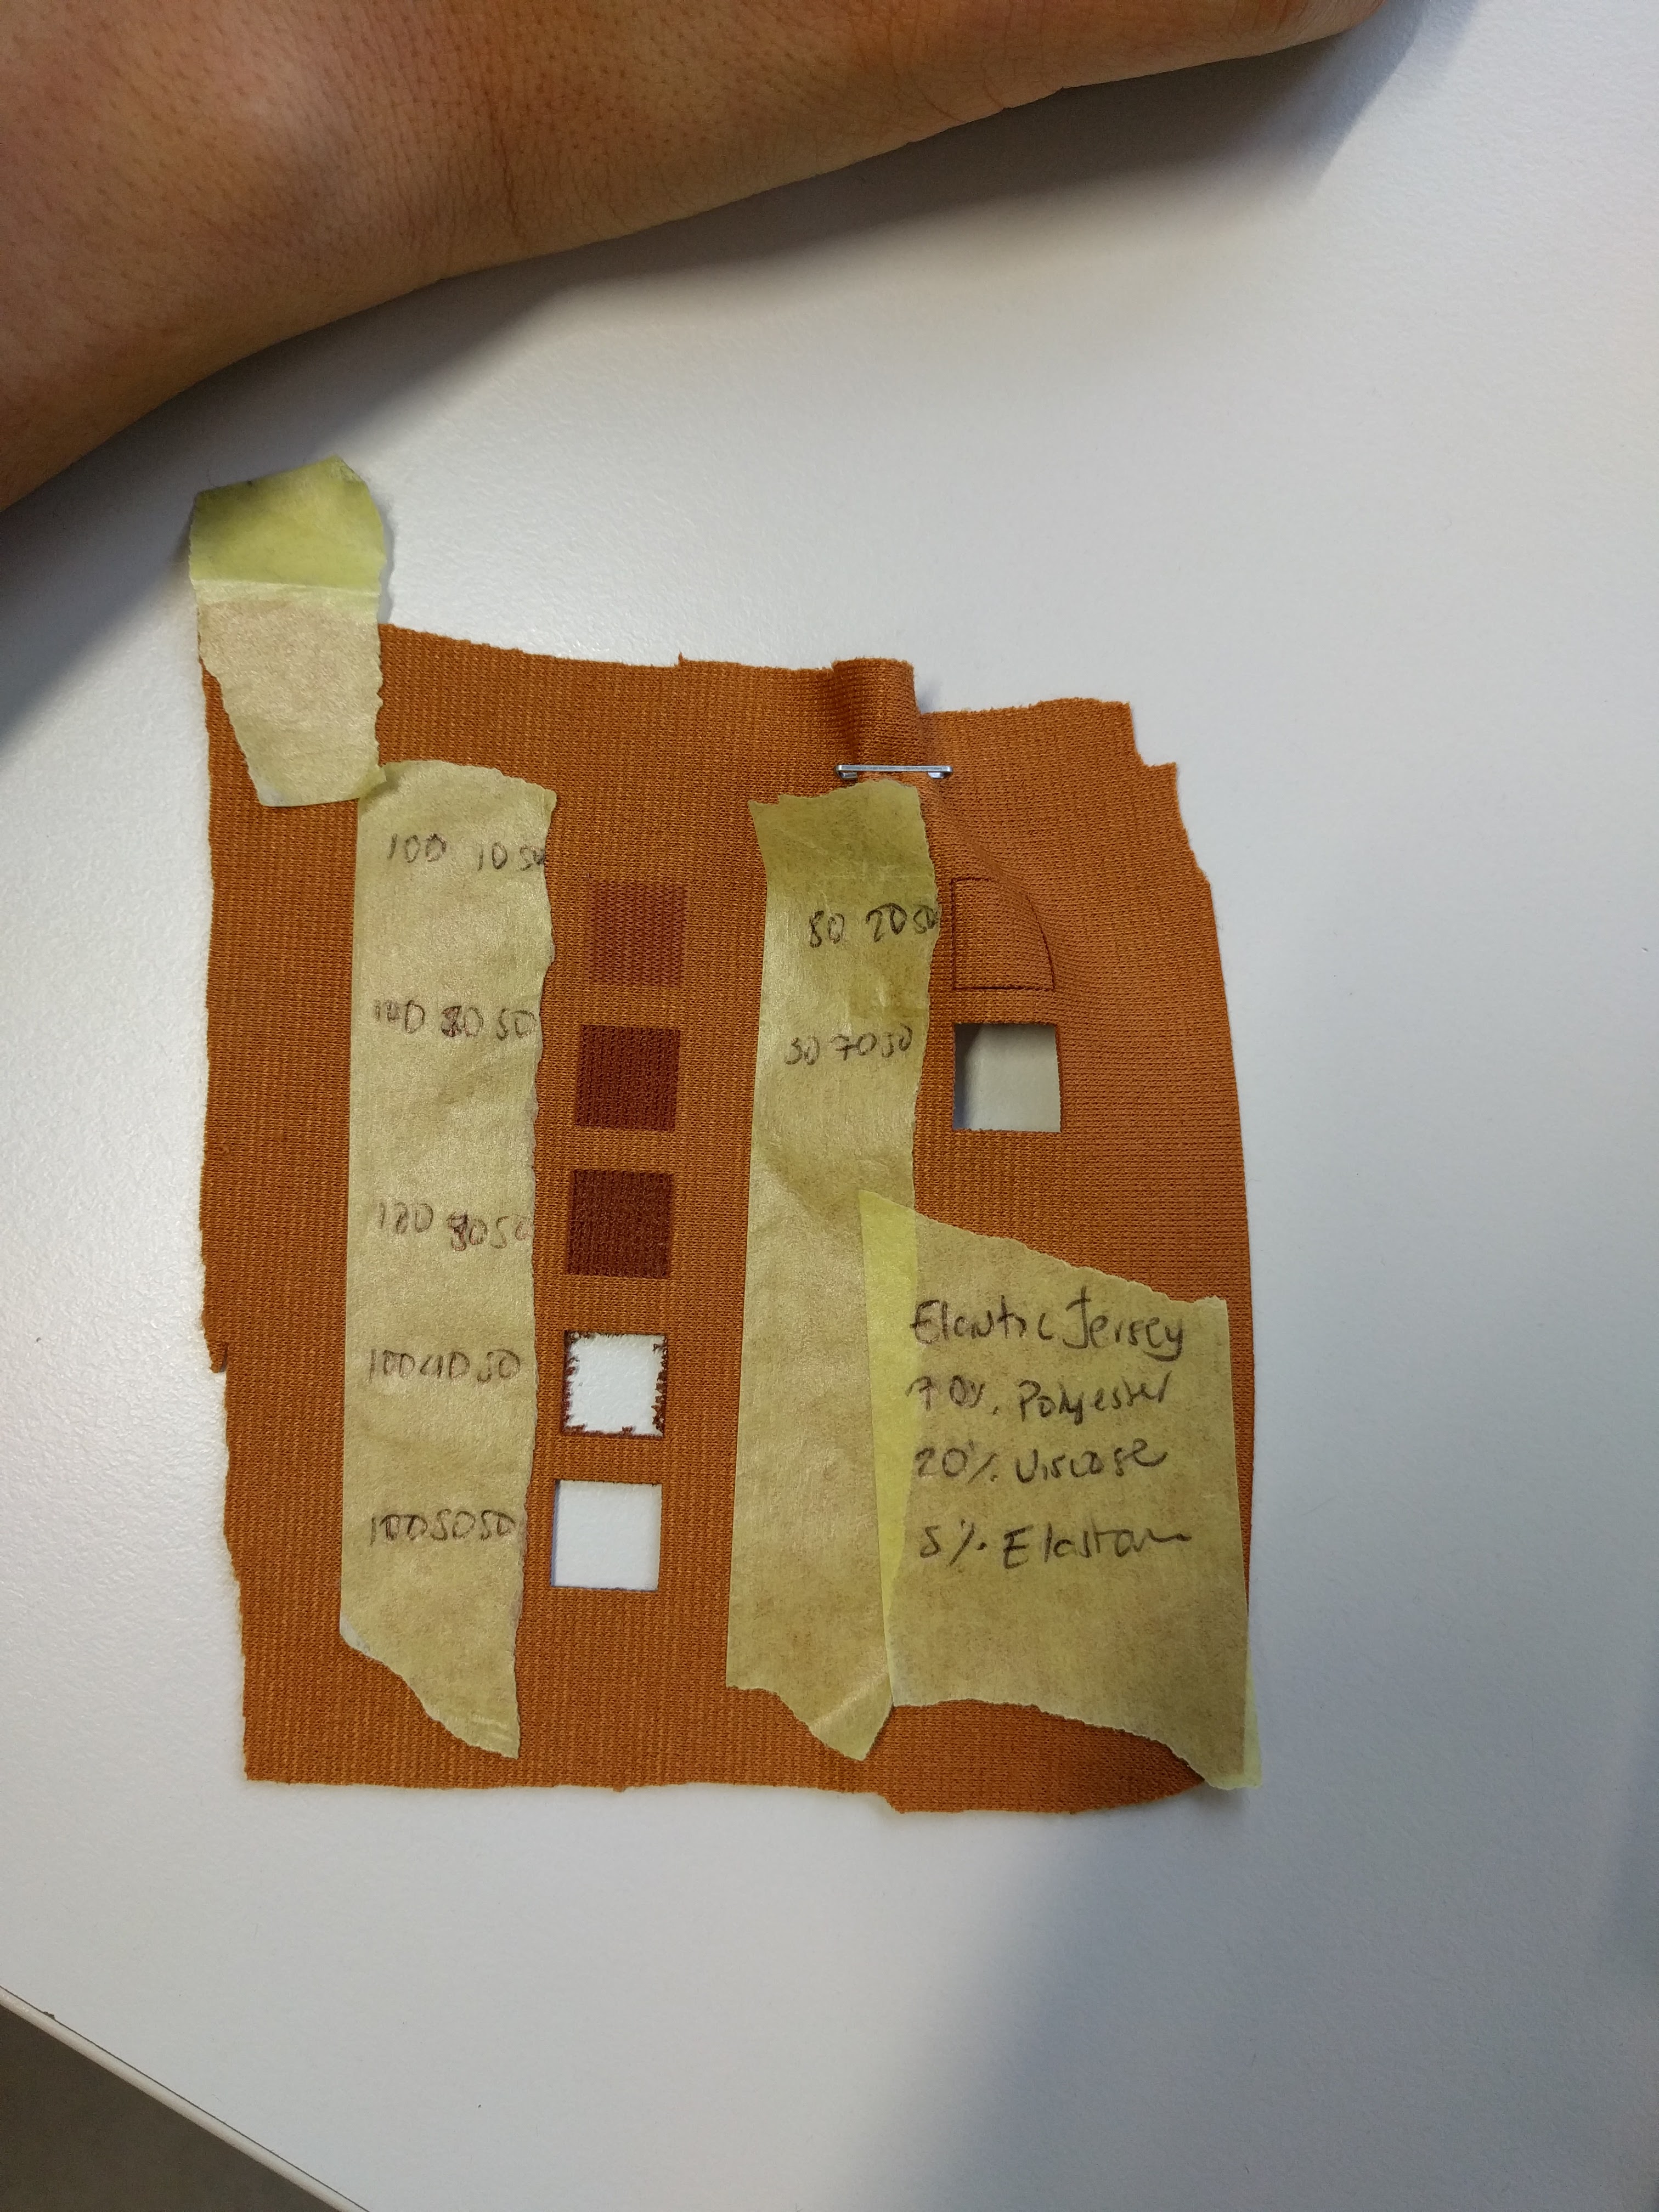 100 10 50
100 50
100 50
100 40 50
100 50 50
80 20 50
50 70 50
Elastic Jersey
70% Polyester
20% Viscose
5% Elastan